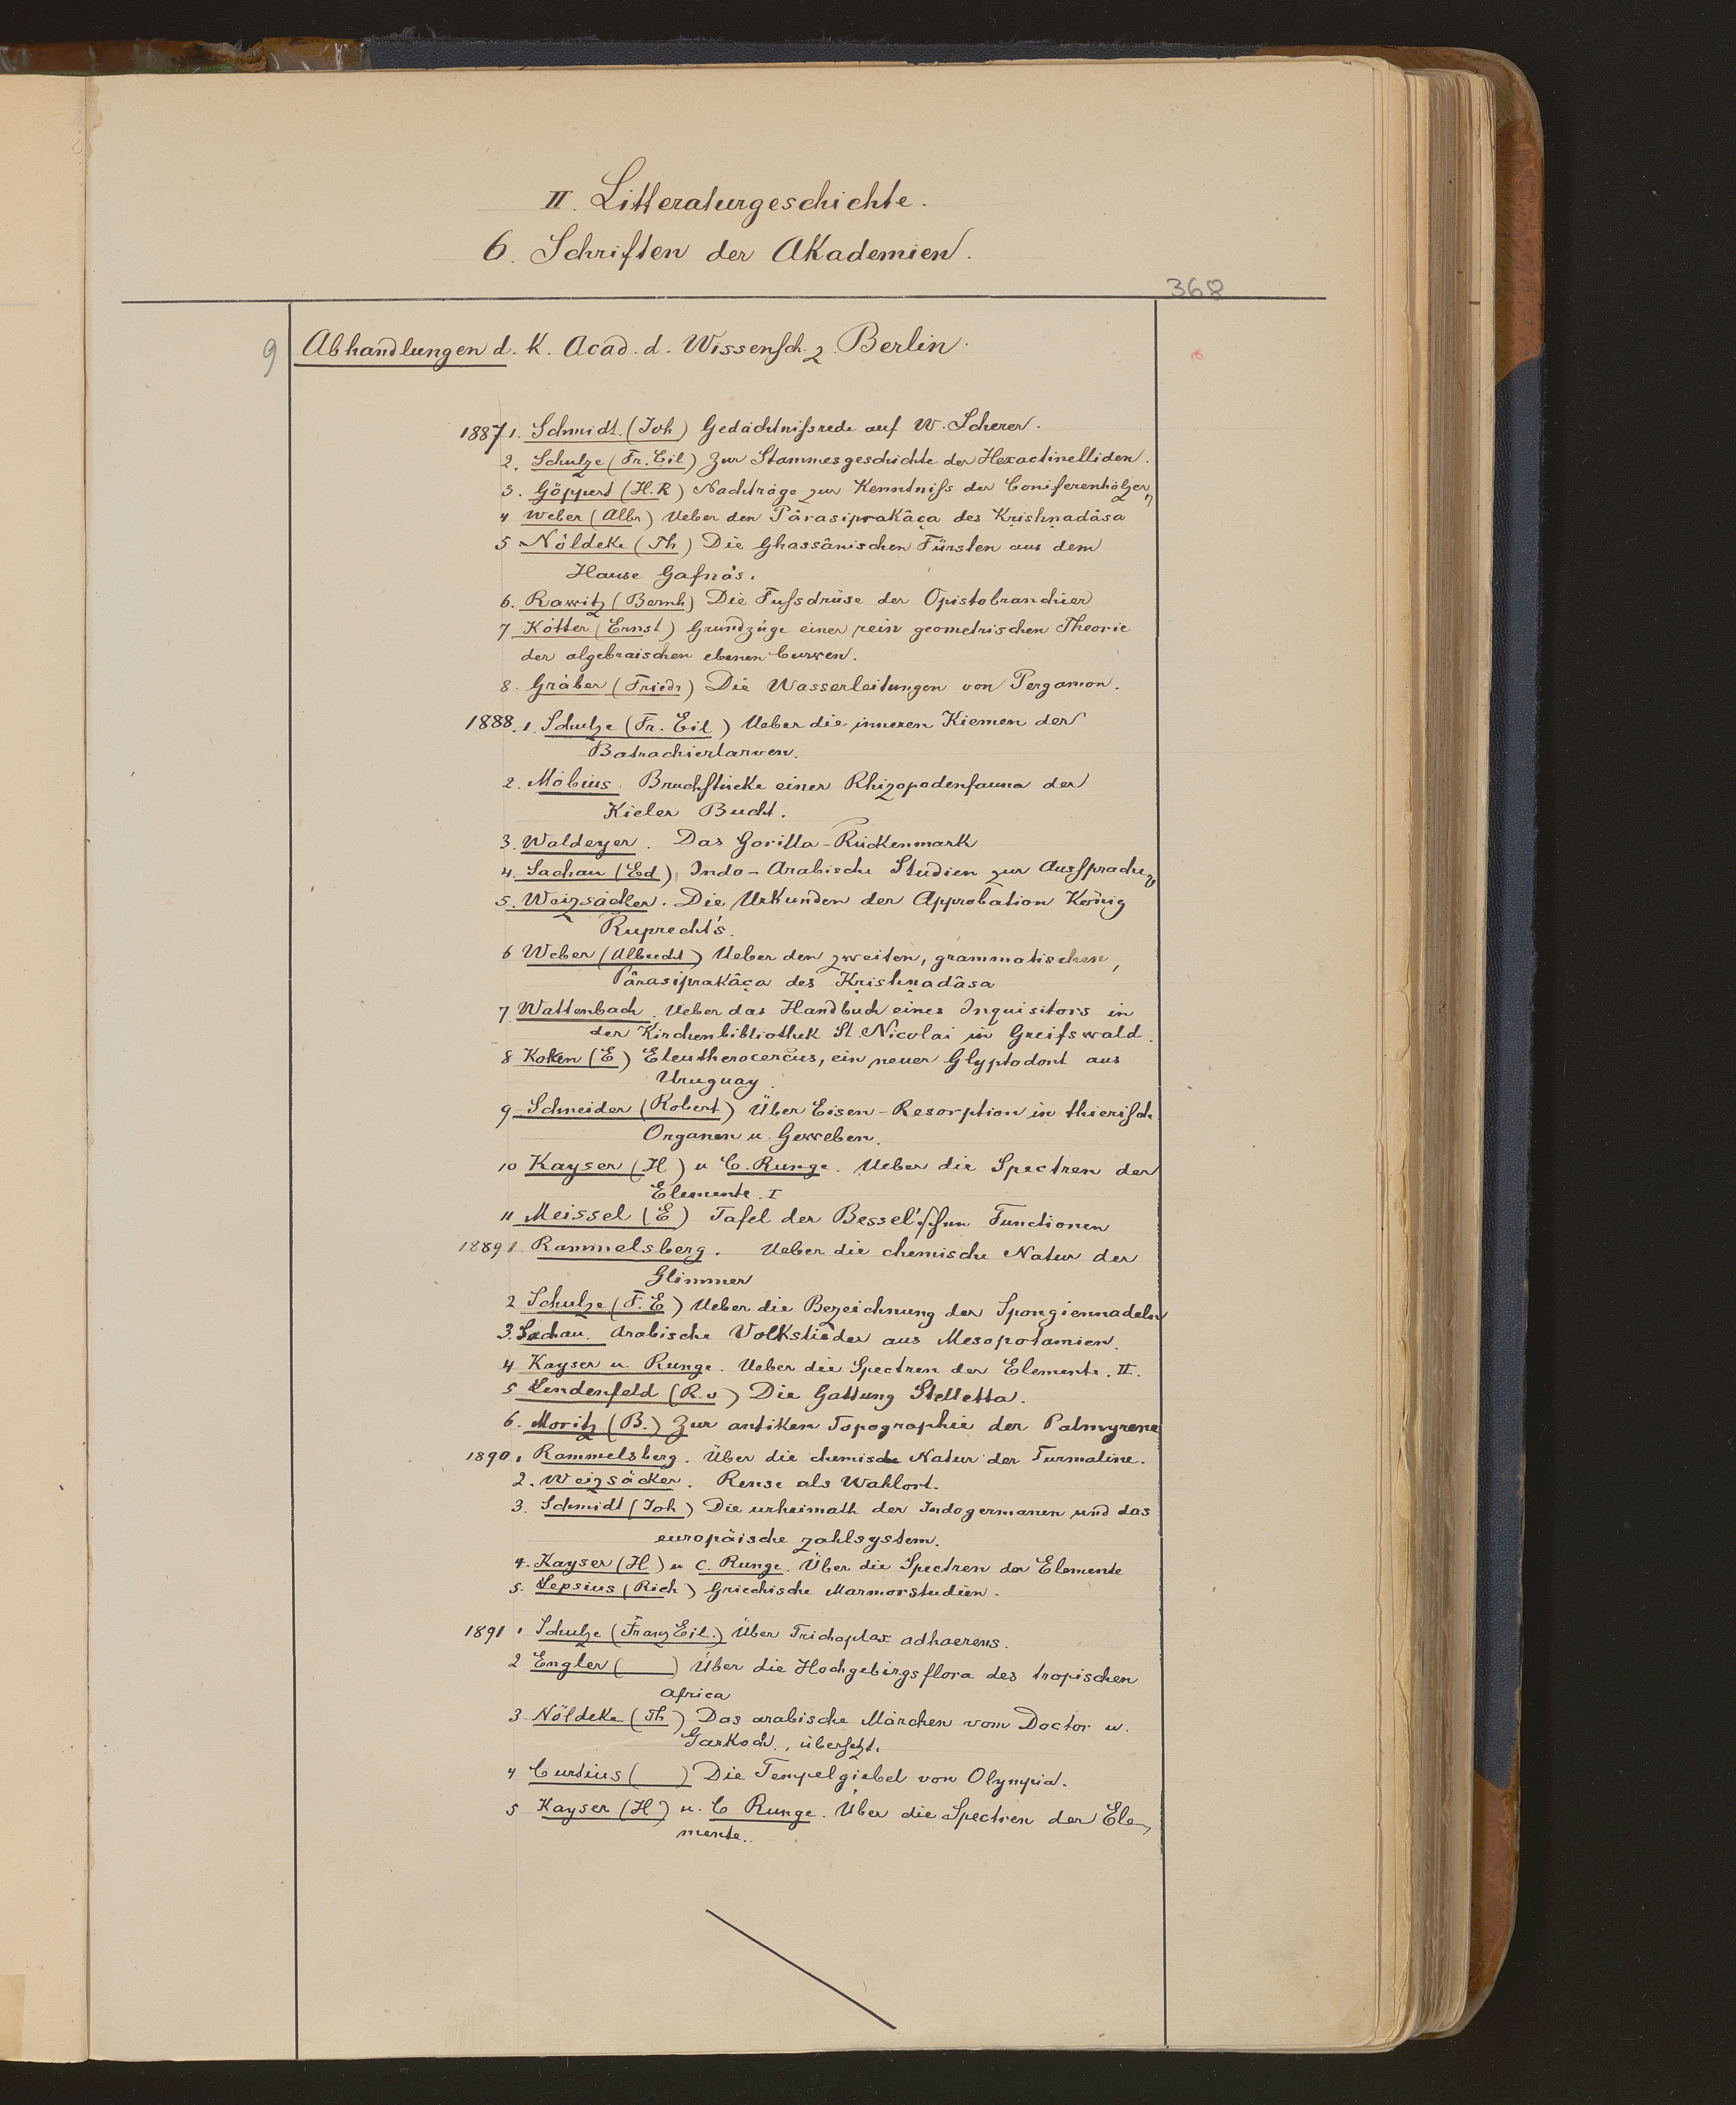 II. Litteraturgeschichte.
6. Schriften der Akademien.
368
9 Abhandlungen d. K. Acad. d. Wissensch. z. Berlin.
1887 1. Schmidt. (Joh) Gedächtnißrede auf W. Scherer.
2. Schulze (Fr. Eil) Zur Stammesgeschichte der Hexactinelliden.
3. Göppert (H.R) Nachträge zur Kenntniß der Coniferenhölzer
4 Weber (Albr) Ueber den Pârasiprakâça des Kṛishṇadâsa
5 Nöldeke (Th) Die Ghassânischen Fürsten aus dem
Hause Gafna's.
6. Rawitz (Bernh) Die Fußdrüse der Opistobranchier
7 Kötter (Ernst) Grundzüge einer rein geometrischen Theorie
der algebraischen ebenen Curven.
8. Gräber (Friedr) Die Wasserleitungen von Pergamon.
1888. 1. Schulze (Fr. Eil) Ueber die inneren Kiemen der
Batrachierlarven.
2. Möbius. Bruchstücke einer Rhizopodenfauna der
Kieler Bucht.
3. Waldeyer. Das Gorilla-Rückenmark
4. Sachau (Ed) Indo-Arabische Studien zur Aussprache
5. Weizsäcker. Die Urkunden der Approbation König
Ruprecht's.
6 Weber (Albrecht) Ueber den zweiten, grammatischen,
Pârasiprakâça des Kṛishṇadâsa
7 Wattenbach. Ueber das Handbuch eines Inquisitors in
der Kirchenbibliothek St. Nicolai in Greifswald.
8 Koken (E) Eleutherocercus, ein neuer Glyptodont aus
Uruguay.
9 Schneider (Robert) Über Eisen-Resorption in thierisch
Organen u. Geweben.
10 Kayser (H) u C. Runge. Ueber die Spectren der
Elemente. I
11 Meissel (E) Tafel der Bessel'schen Functionen
1889 1 Rammelsberg. Ueber die chemische Natur der
Glimmer
2 Schulze (F. E) Ueber die Bezeichnung der Spongiennadeln
3. Sachau. Arabische Volkslieder aus Mesopotamien.
4 Kayser u Runge. Ueber die Spectren der Elemente. II.
5 Lendenfeld (R. v) Die Gattung Stelletta.
6. Moritz (B.) Zur antiken Topographie der Palmyrene
1890 1 Rammelsberg. Über die chemische Natur der Turmaline.
2. Weizsäcker. Rense als Wahlort.
3. Schmidt (Joh) Die urheimath der Indogermanen und das
europäische zahlsystem.
4. Kayser (H) u C. Runge. Über die Spectren der Elemente
5. Lepsius (Rich) Griechische Marmorstudien.
1891 1 Schulze (Franz Eil.) Über Trichoplax adhaerens.
2 Engler ( ) Über die Hochgebirgsflora des tropischen
Africa
3 Nöldeke (Th) Das arabische Märchen vom Doctor u.
Garkoch., übersetzt.
4 Curtius ( ) Die Tempelgiebel von Olympia.
5 Kayser (H) u. C Runge. Über die Spectren der Ele-
mente.